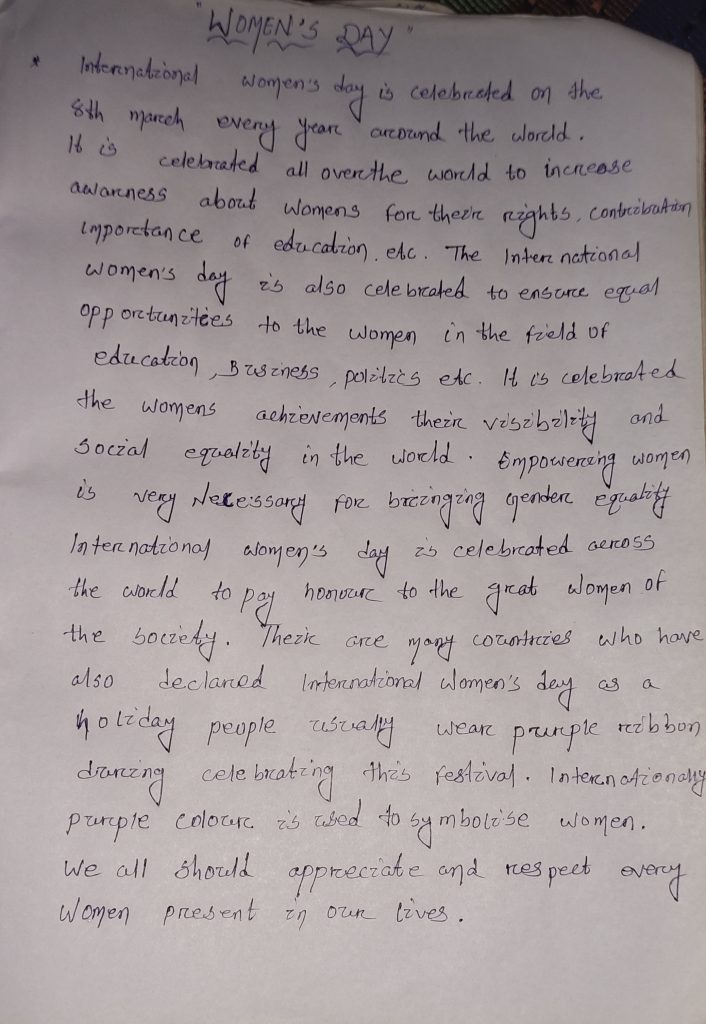 "WOMEN'S DAY"
* International women's day is celebrated on the
8th march every year around the world.
It is celebrated all over the world to increase
awareness about womens for their rights, contribution
importance of education, etc. The International
women's day is also celebrated to ensure equal
opportunities to the women in the field of
education, Business, politics etc. It is celebrated
the womens achievements their visibility and
social equality in the world. Empowering women
is very Necessary for bringing gender equality
International women's day is celebrated across
the world to pay honour to the great women of
the society. Their are many countries who have
also declared International Women's day as a
holiday people usually wear purple ribbon
during celebrating this festival. Internationally
purple colour is used to symbolise women.
We all should appreciate and respect every
Women present in our lives.